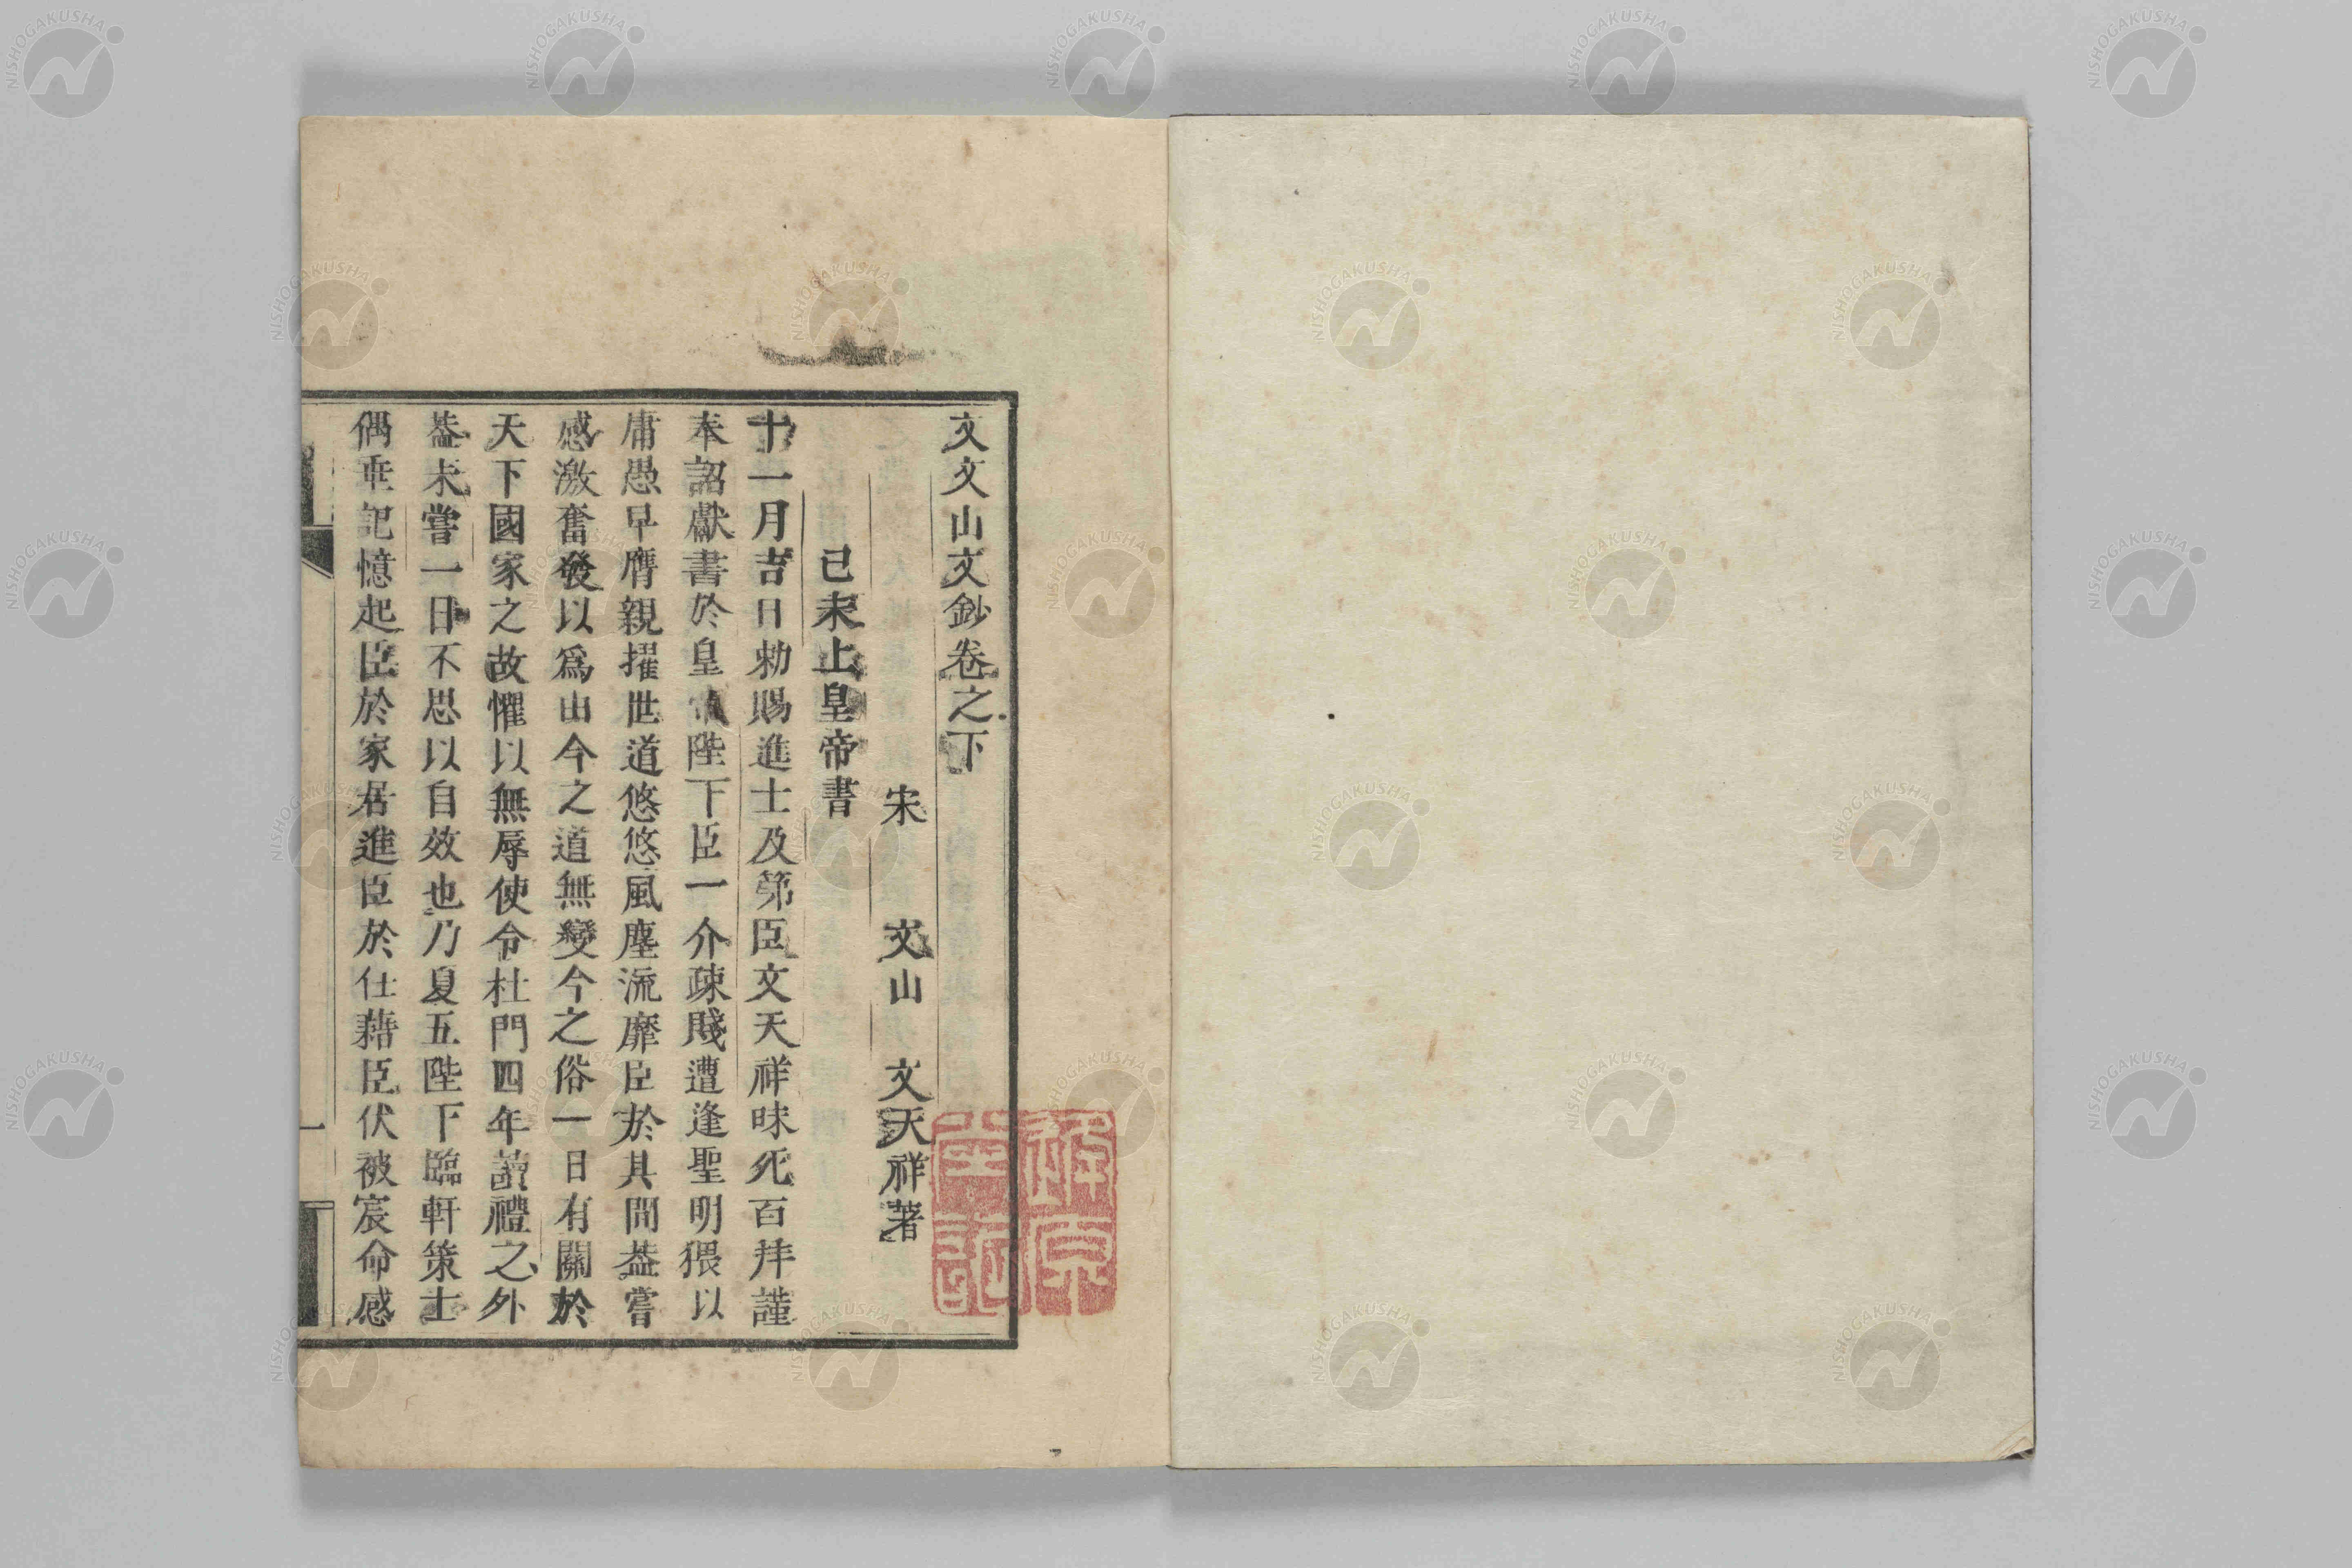 文文山文鈔卷之下
宋 文山 文天祥著
己未上皇帝書
十一月吉日勅賜進士及第臣文天祥昧死百拜謹
奉詔獻書於皇帝陛下臣一介疎賤遭逢聖明猥以
庸愚早膺親擢世道悠悠風塵流靡臣於其間葢嘗
感激奮發以爲由今之道無變今之俗一日有關於
天下國家之故懼以無辱使令杜門四年讀禮之外
葢未嘗一日不思以自效也乃夏五陛下臨軒策士
偶垂記憶起臣於家居進臣於仕藉臣伏被宸命感
一
NISHOGAKUSHA